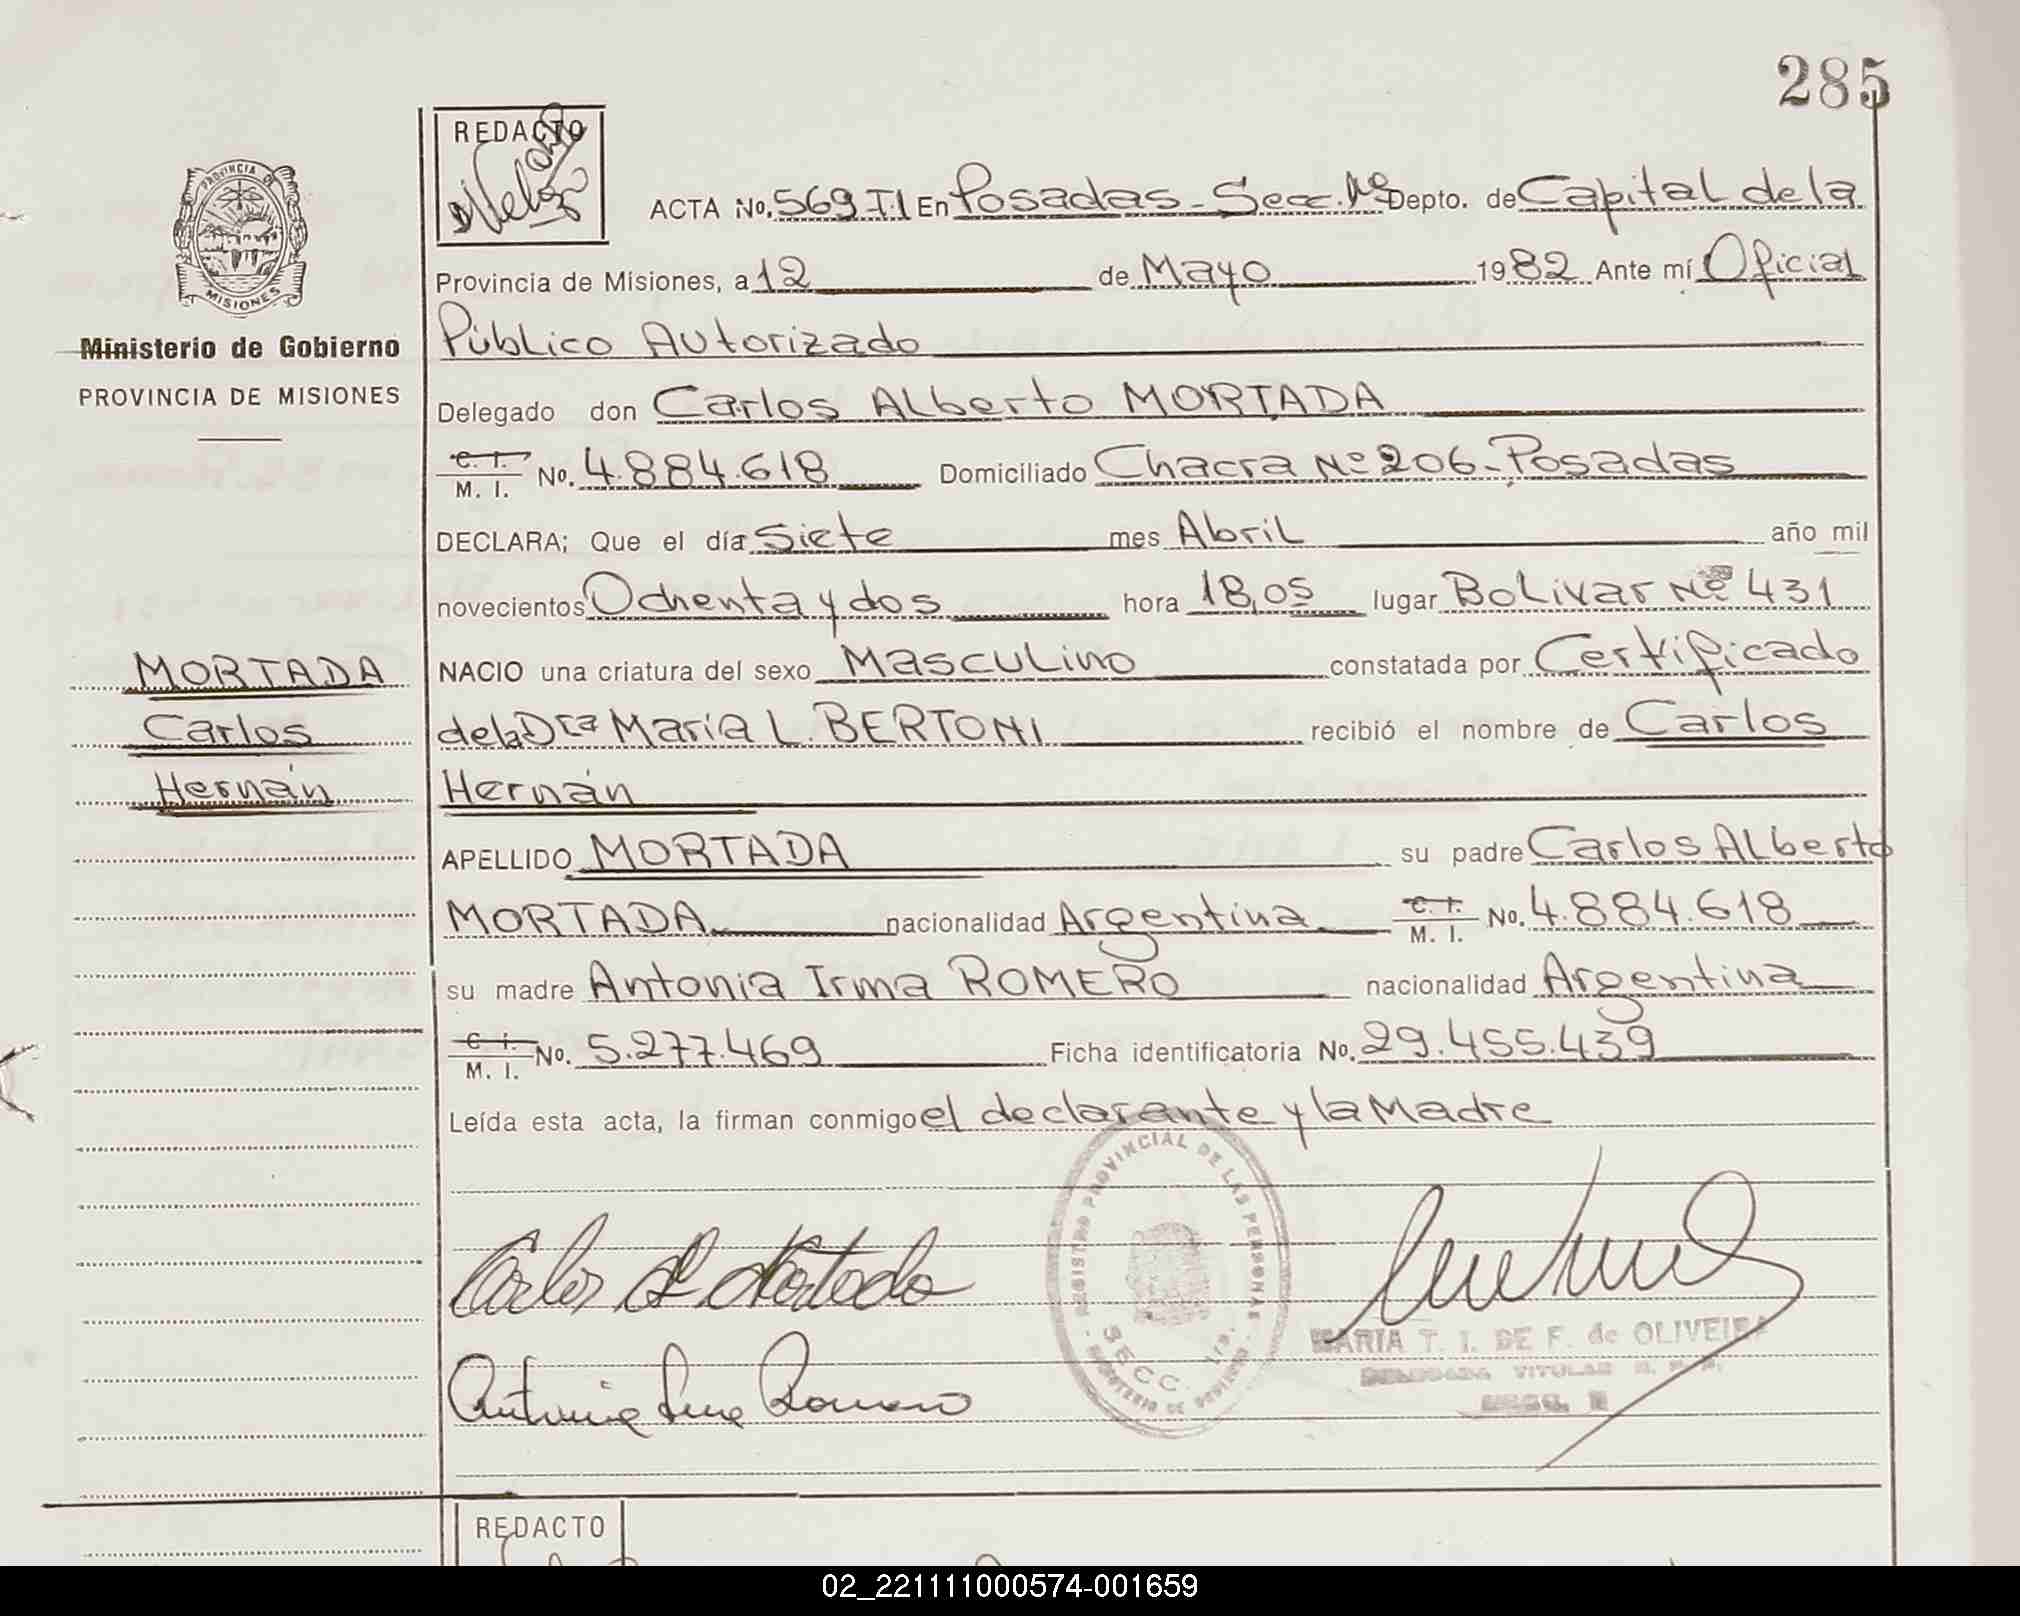 285
REDACTO
ACTA No. 569 T.I En Posadas - Secc. 1ª Depto. de Capital de la
Provincia de Misiones, a 12 de Mayo 1982 Ante mí Oficial
Público Autorizado
Delegado don Carlos Alberto MORTADA
C. I. M. I. No. 4.884.618 Domiciliado Chacra Nº 206 - Posadas
DECLARA; Que el día siete mes Abril año mil
novecientos Ochenta y dos hora 18,05 lugar Bolivar Nº 431
NACIO una criatura del sexo Masculino constatada por Certificado
de la Dra María L. BERTONI recibió el nombre de Carlos
Hernán
APELLIDO MORTADA su padre Carlos Alberto
MORTADA nacionalidad Argentina C. I. M. I. No. 4.884.618
su madre Antonia Irma ROMERO nacionalidad Argentina
C. I. M. I. No. 5.277.469 Ficha identificatoria No. 29.455.439
Leída esta acta, la firman conmigo el declarante y la Madre
PROVINCIA DE
MISIONES
Ministerio de Gobierno
PROVINCIA DE MISIONES
MORTADA
Carlos
Hernán
Carlos A Mortada
Antonia Irma Romero
REGISTRO PROVINCIAL DE LAS PERSONAS
SECC. 1ra.
MARIA T. I. DE F. de OLIVEIRA
REDACTO
02_221111000574-001659